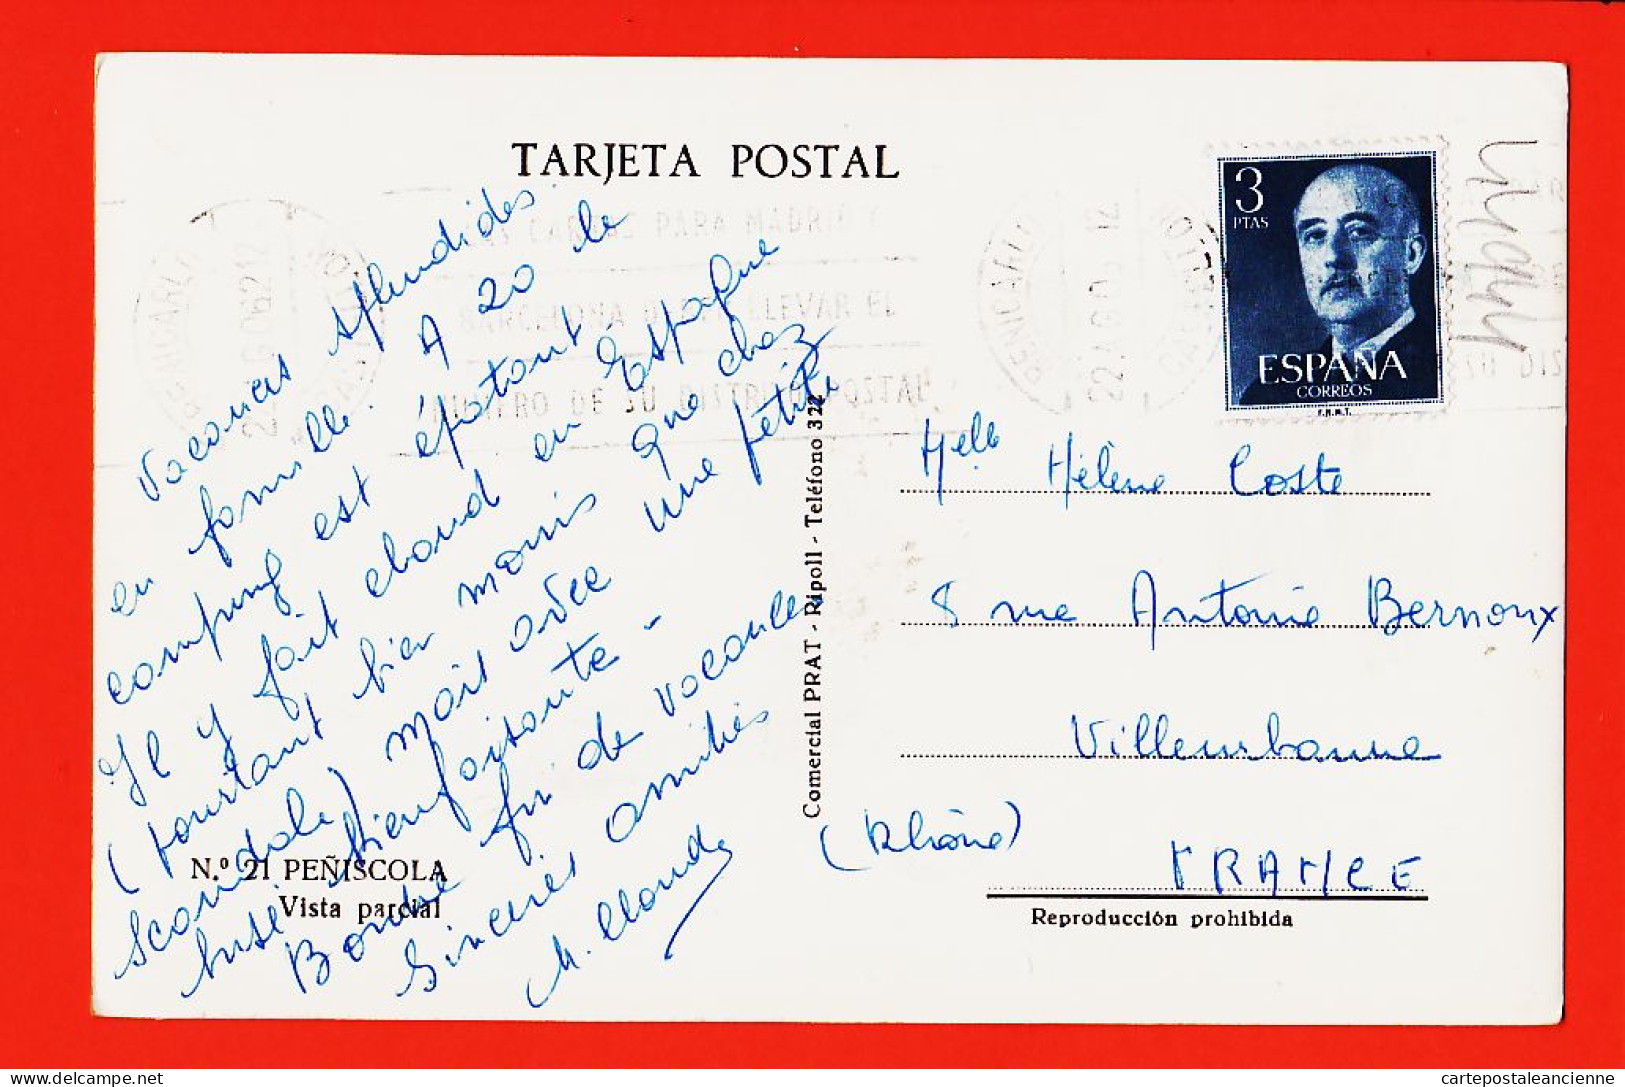 TARJETA POSTAL
LAS CARTAS PARA MADRID Y
BARCELONA DEBEN LLEVAR EL
NUMERO DE SU DISTRITO POSTAL
3
PTAS
ESPAÑA
CORREOS
F.N.M.T.
Vacances splendides
en famille. A 20 le
camping est épatant.
Il y fait chaud en Espagne
(pourtant bien moins que chez
Scandale) mais avec une petite
brise bienfaisante -
Bonne fin de vacances
Sincères amitiés
M. Claude
N.º 21 PEÑISCOLA
Vista parcial
Comercial PRAT - Ripoll - Teléfono 322
Melle Hélène Coste
8 rue Antonie Bernoux
Villeurbanne
(Rhône)
FRANCE
Reproducción prohibida
www.delcampe.net
cartepostaleancienne